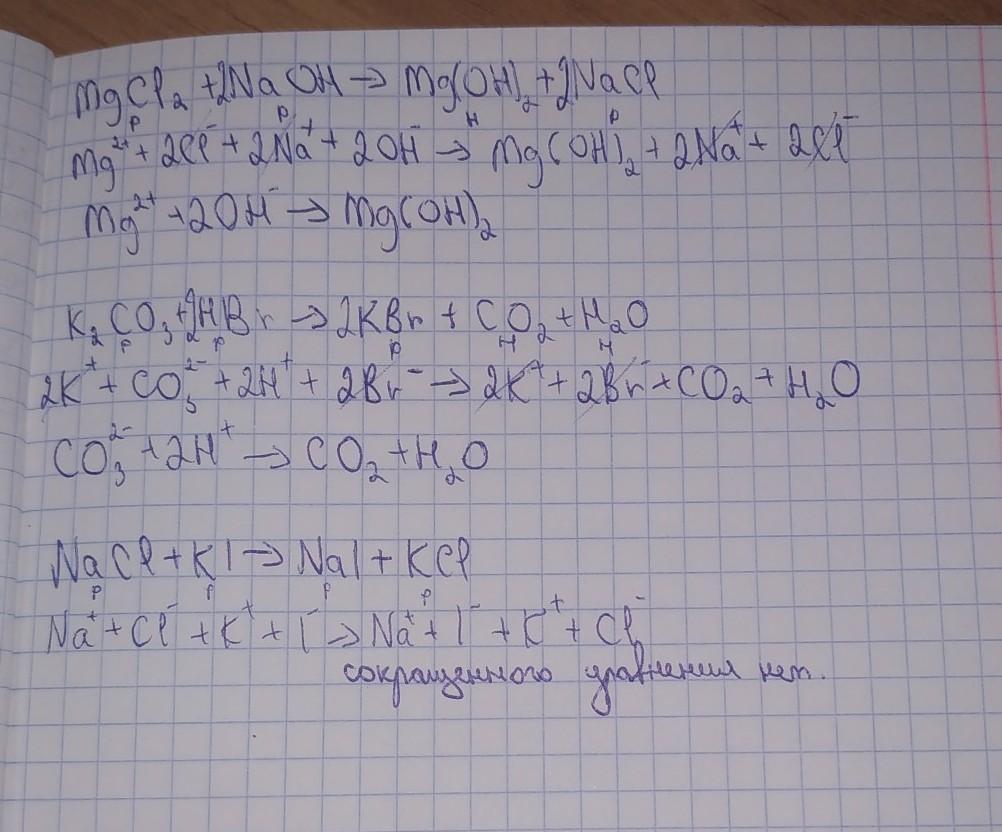 MgCl₂ + 2NaOH → Mg(OH)₂ + 2NaCl
р р н р
Mg²⁺ + 2Cl⁻ + 2Na⁺ + 2OH⁻ → Mg(OH)₂ + 2Na⁺ + 2Cl⁻
Mg²⁺ + 2OH⁻ → Mg(OH)₂
K₂CO₃ + 2HBr → 2KBr + CO₂ + H₂O
р р р н н
2K⁺ + CO₃²⁻ + 2H⁺ + 2Br⁻ → 2K⁺ + 2Br⁻ + CO₂ + H₂O
CO₃²⁻ + 2H⁺ → CO₂ + H₂O
NaCl + KI → NaI + KCl
р р р р
Na⁺ + Cl⁻ + K⁺ + I⁻ → Na⁺ + I⁻ + K⁺ + Cl⁻
сокращенного уравнения нет.